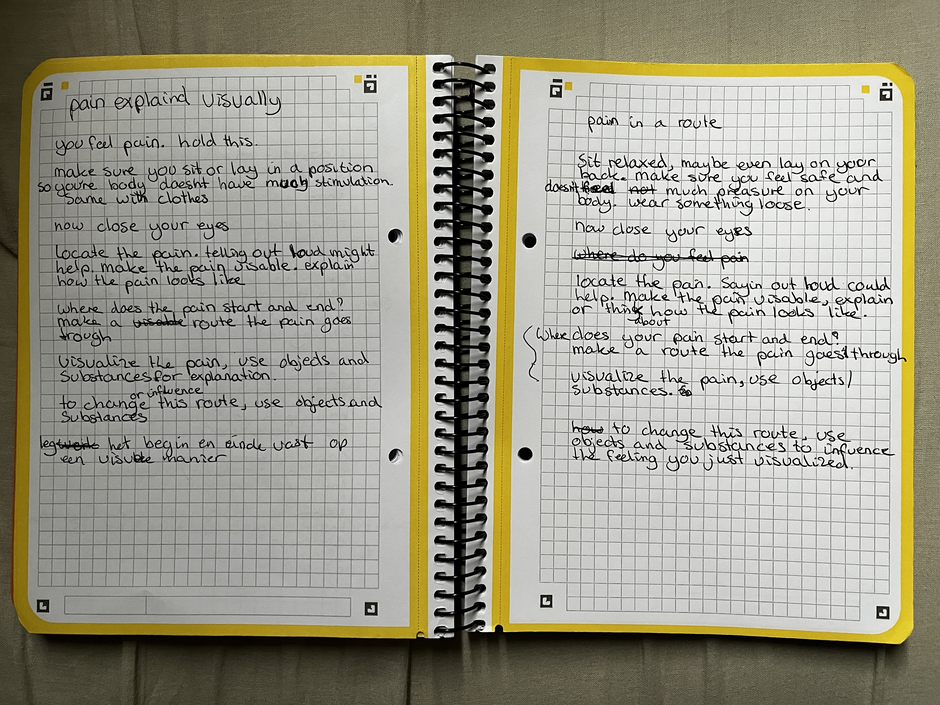 pain explaind visually
you feel pain. hold this.
make sure you sit or lay in a position
so you're body doesnt have much stimulation.
same with clothes
now close your eyes
locate the pain. telling out loud might
help. make the pain visable. explain
how the pain looks like
where does the pain start and end?
make a visable route the pain goes
trough
visualize the pain, use objects and
substances for explanation.
or influence
to change this route, use objects and
substances
leg het begin en einde vast op
een visuele manier
pain in a route
Sit relaxed, maybe even lay on your
back. make sure you feel safe and
doesnt feel not much preasure on your
body. wear something loose.
now close your eyes
where do you feel pain
locate the pain. Sayin out loud could
help. make the pain visable, explain
or think how the pain looks like.
about
Where does your pain start and end?
make a route the pain goes through
visualize the pain, use objects/
substances.
how to change this route, use
objects and substances to influence
the feeling you just visualized.